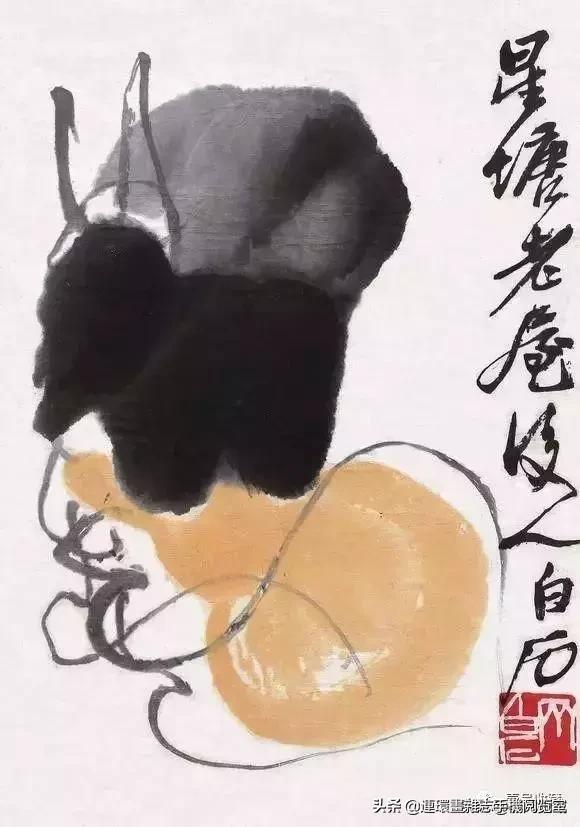 星塘老屋後人白石
头条 @連環畫雜志手機阅览室